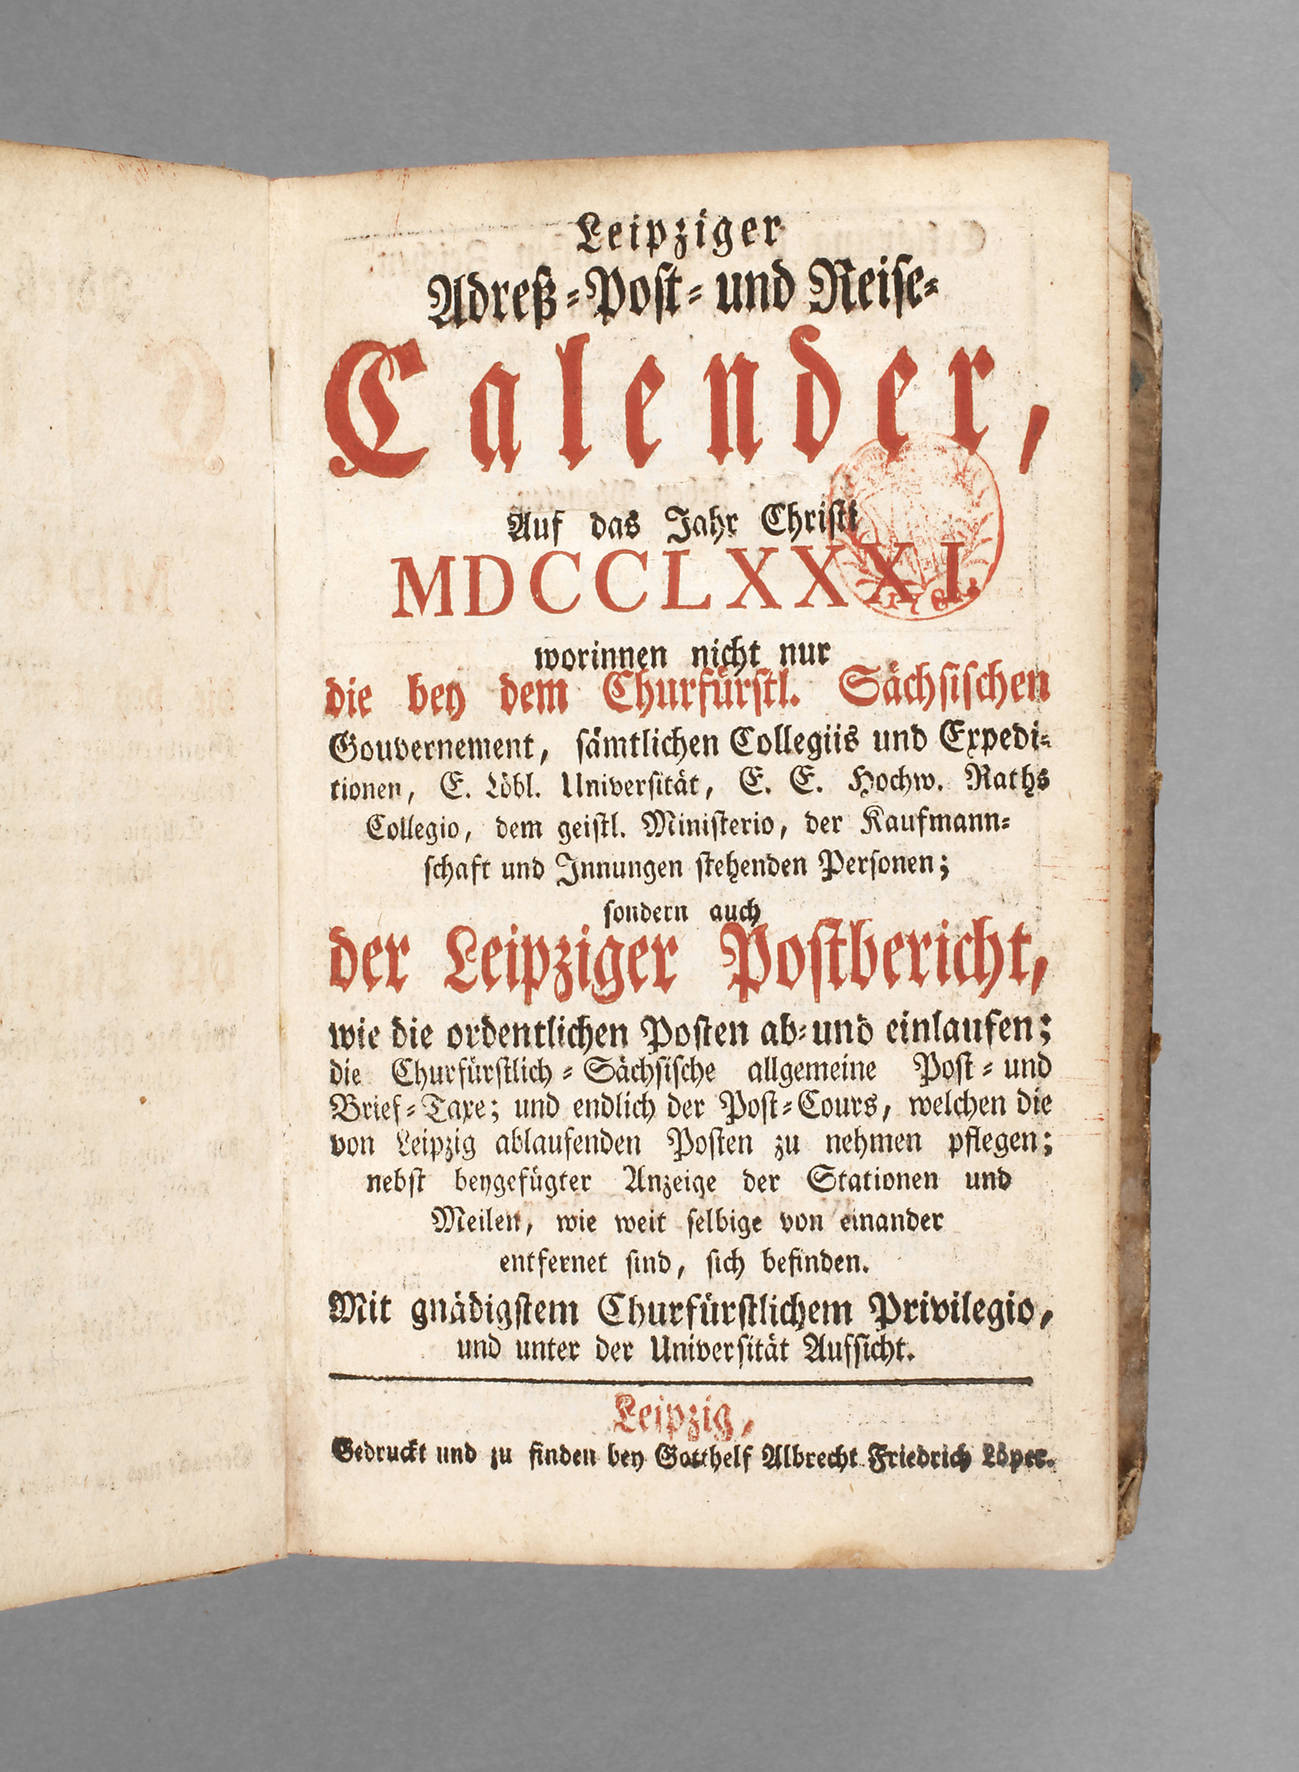 Leipziger
Adreß-Post- und Reise-
Calender,
Auf das Jahr Christi
MDCCLXXXI.
worinnen nicht nur
die bey dem Churfürstl. Sächsischen
Gouvernement, sämtlichen Collegiis und Expedi-
tionen, E. Löbl. Universität, E. E. Hochw. Raths
Collegio, dem geistl. Ministerio, der Kaufmann-
schaft und Innungen stehenden Personen;
sondern auch
der Leipziger Postbericht,
wie die ordentlichen Posten ab- und einlaufen;
die Churfürstlich-Sächsische allgemeine Post- und
Brief-Taxe; und endlich der Post-Cours, welchen die
von Leipzig ablaufenden Posten zu nehmen pflegen;
nebst beygefügter Anzeige der Stationen und
Meilen, wie weit selbige von einander
entfernet sind, sich befinden.
Mit gnädigstem Churfürstlichem Privilegio,
und unter der Universität Aufsicht.
Leipzig,
Gedruckt und zu finden bey Gotthelf Albrecht Friedrich Löper.